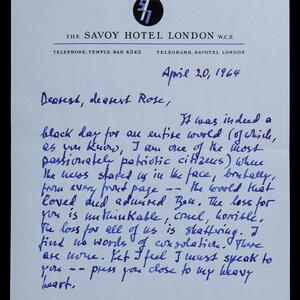 THE SAVOY HOTEL LONDON W.C.2
TELEPHONE, TEMPLE BAR 4343 TELEGRAMS, SAVOTEL LONDON
April 20, 1964
Dearest, dearest Rose,
It was indeed a
black day for an entire world (of which,
as you know, I am one of the most
passionately patriotic citizens) when
the news stared us in the face, brutally,
from every front page -- the world that
loved and admired Ben. The loss for
you is unthinkable, cruel, horrible.
The loss for all of us is shattering. I
find no words of consolation. There
are none. Yet I feel I must speak to
you -- press you close to my heavy
heart.